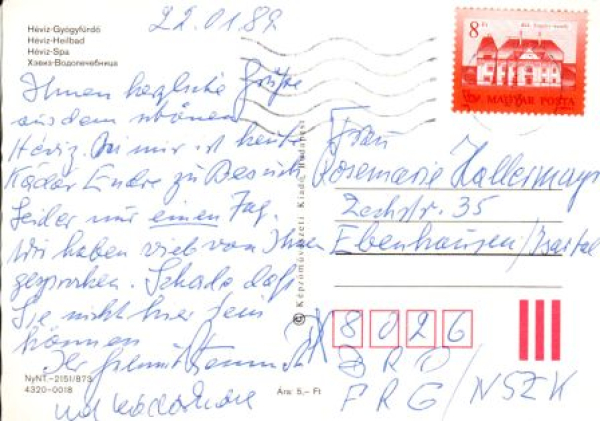 22.01.89
Hévíz-Gyógyfürdő
Hévíz-Heilbad
Hévíz-Spa
Хэвиз-Водолечебница
Ihnen herzliche Grüße
aus dem schönen
Hévíz. Bei mir ist heute
Kádár Endre zu Besuch
Leider nur einen Tag.
Wir haben viel von Ihnen
gesprochen. Schade daß
Sie nicht hier sein
können
Ihr
und
NyNT.-2151/873
4320-0018
Ára: 5,- Ft
© Képzőművészeti Kiadó, Budapest
8 Ft
MAGYAR POSTA
Frau
Rosemarie Hallermayer
Zechstr. 35
Ebenhausen/Isartal
8026
BRD
FRG/NSZK